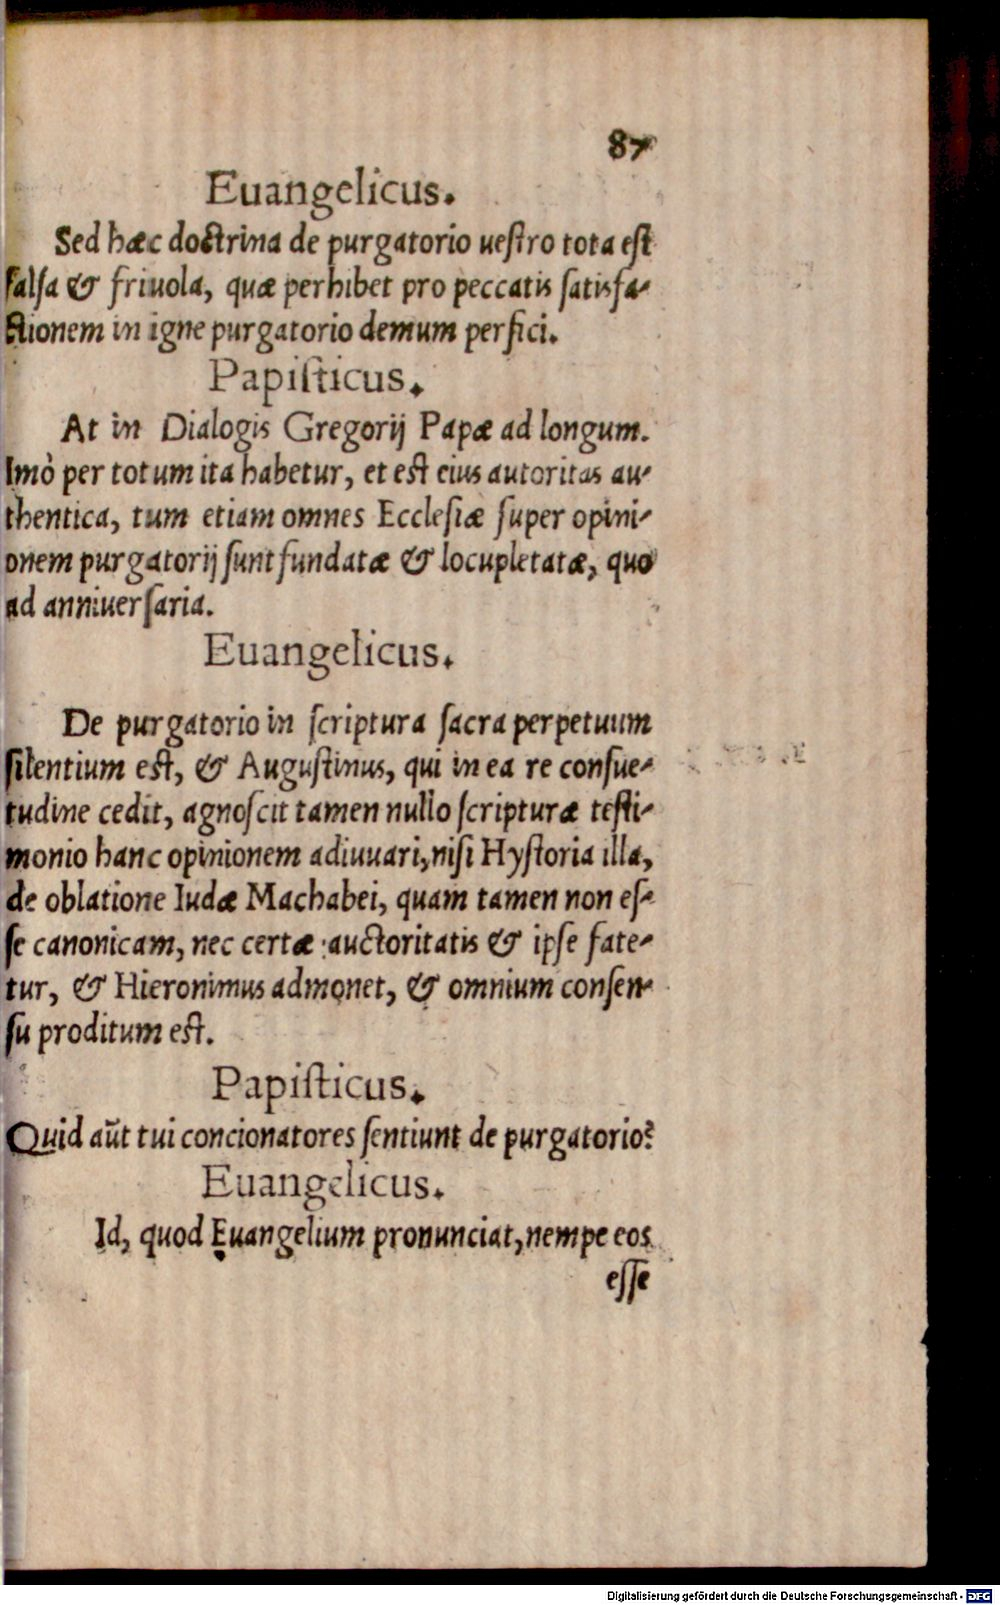 87
Euangelicus.
Sed hæc doctrina de purgatorio uestro tota est
falsa & friuola, quæ perhibet pro peccatis satisfa-
ctionem in igne purgatorio demum perfici.
Papisticus.
At in Dialogis Gregorij Papæ ad longum.
Imò per totum ita habetur, et est eius autoritas au-
thentica, tum etiam omnes Ecclesiæ super opini-
onem purgatorij sunt fundatæ & locupletatæ, quo
ad anniuersaria.
Euangelicus.
De purgatorio in scriptura sacra perpetuum
silentium est, & Augustinus, qui in ea re consue-
tudine cedit, agnoscit tamen nullo scripturæ testi-
monio hanc opinionem adiuuari, nisi Hystoria illa,
de oblatione Iudæ Machabei, quam tamen non es-
se canonicam, nec certæ auctoritatis & ipse fate-
tur, & Hieronimus admonet, & omnium consen-
su proditum est.
Papisticus.
Quid aūt tui concionatores sentiunt de purgatorio?
Euangelicus.
Id, quod Euangelium pronunciat, nempe eos
esse
Digitalisierung gefördert durch die Deutsche Forschungsgemeinschaft - DFG